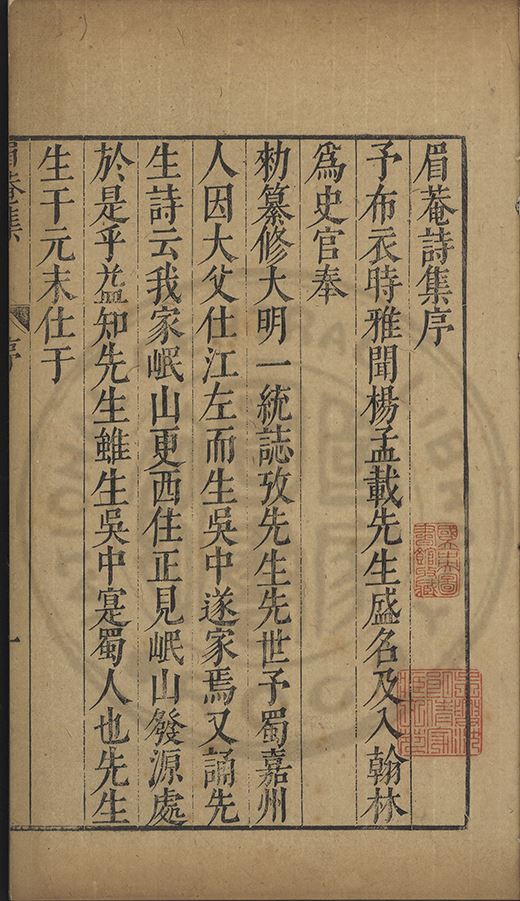 眉菴詩集序
予布衣時雅聞楊孟載先生盛名及入翰林
爲史官奉
勑纂修大明一統誌攷先生先世予蜀嘉州
人因大父仕江左而生吳中遂家焉又誦先
生詩云我家岷山更西住正見岷山發源處
於是乎益知先生雖生吳中寔蜀人也先生
生于元末仕于
眉菴集
序
一
國立中央圖書館收藏